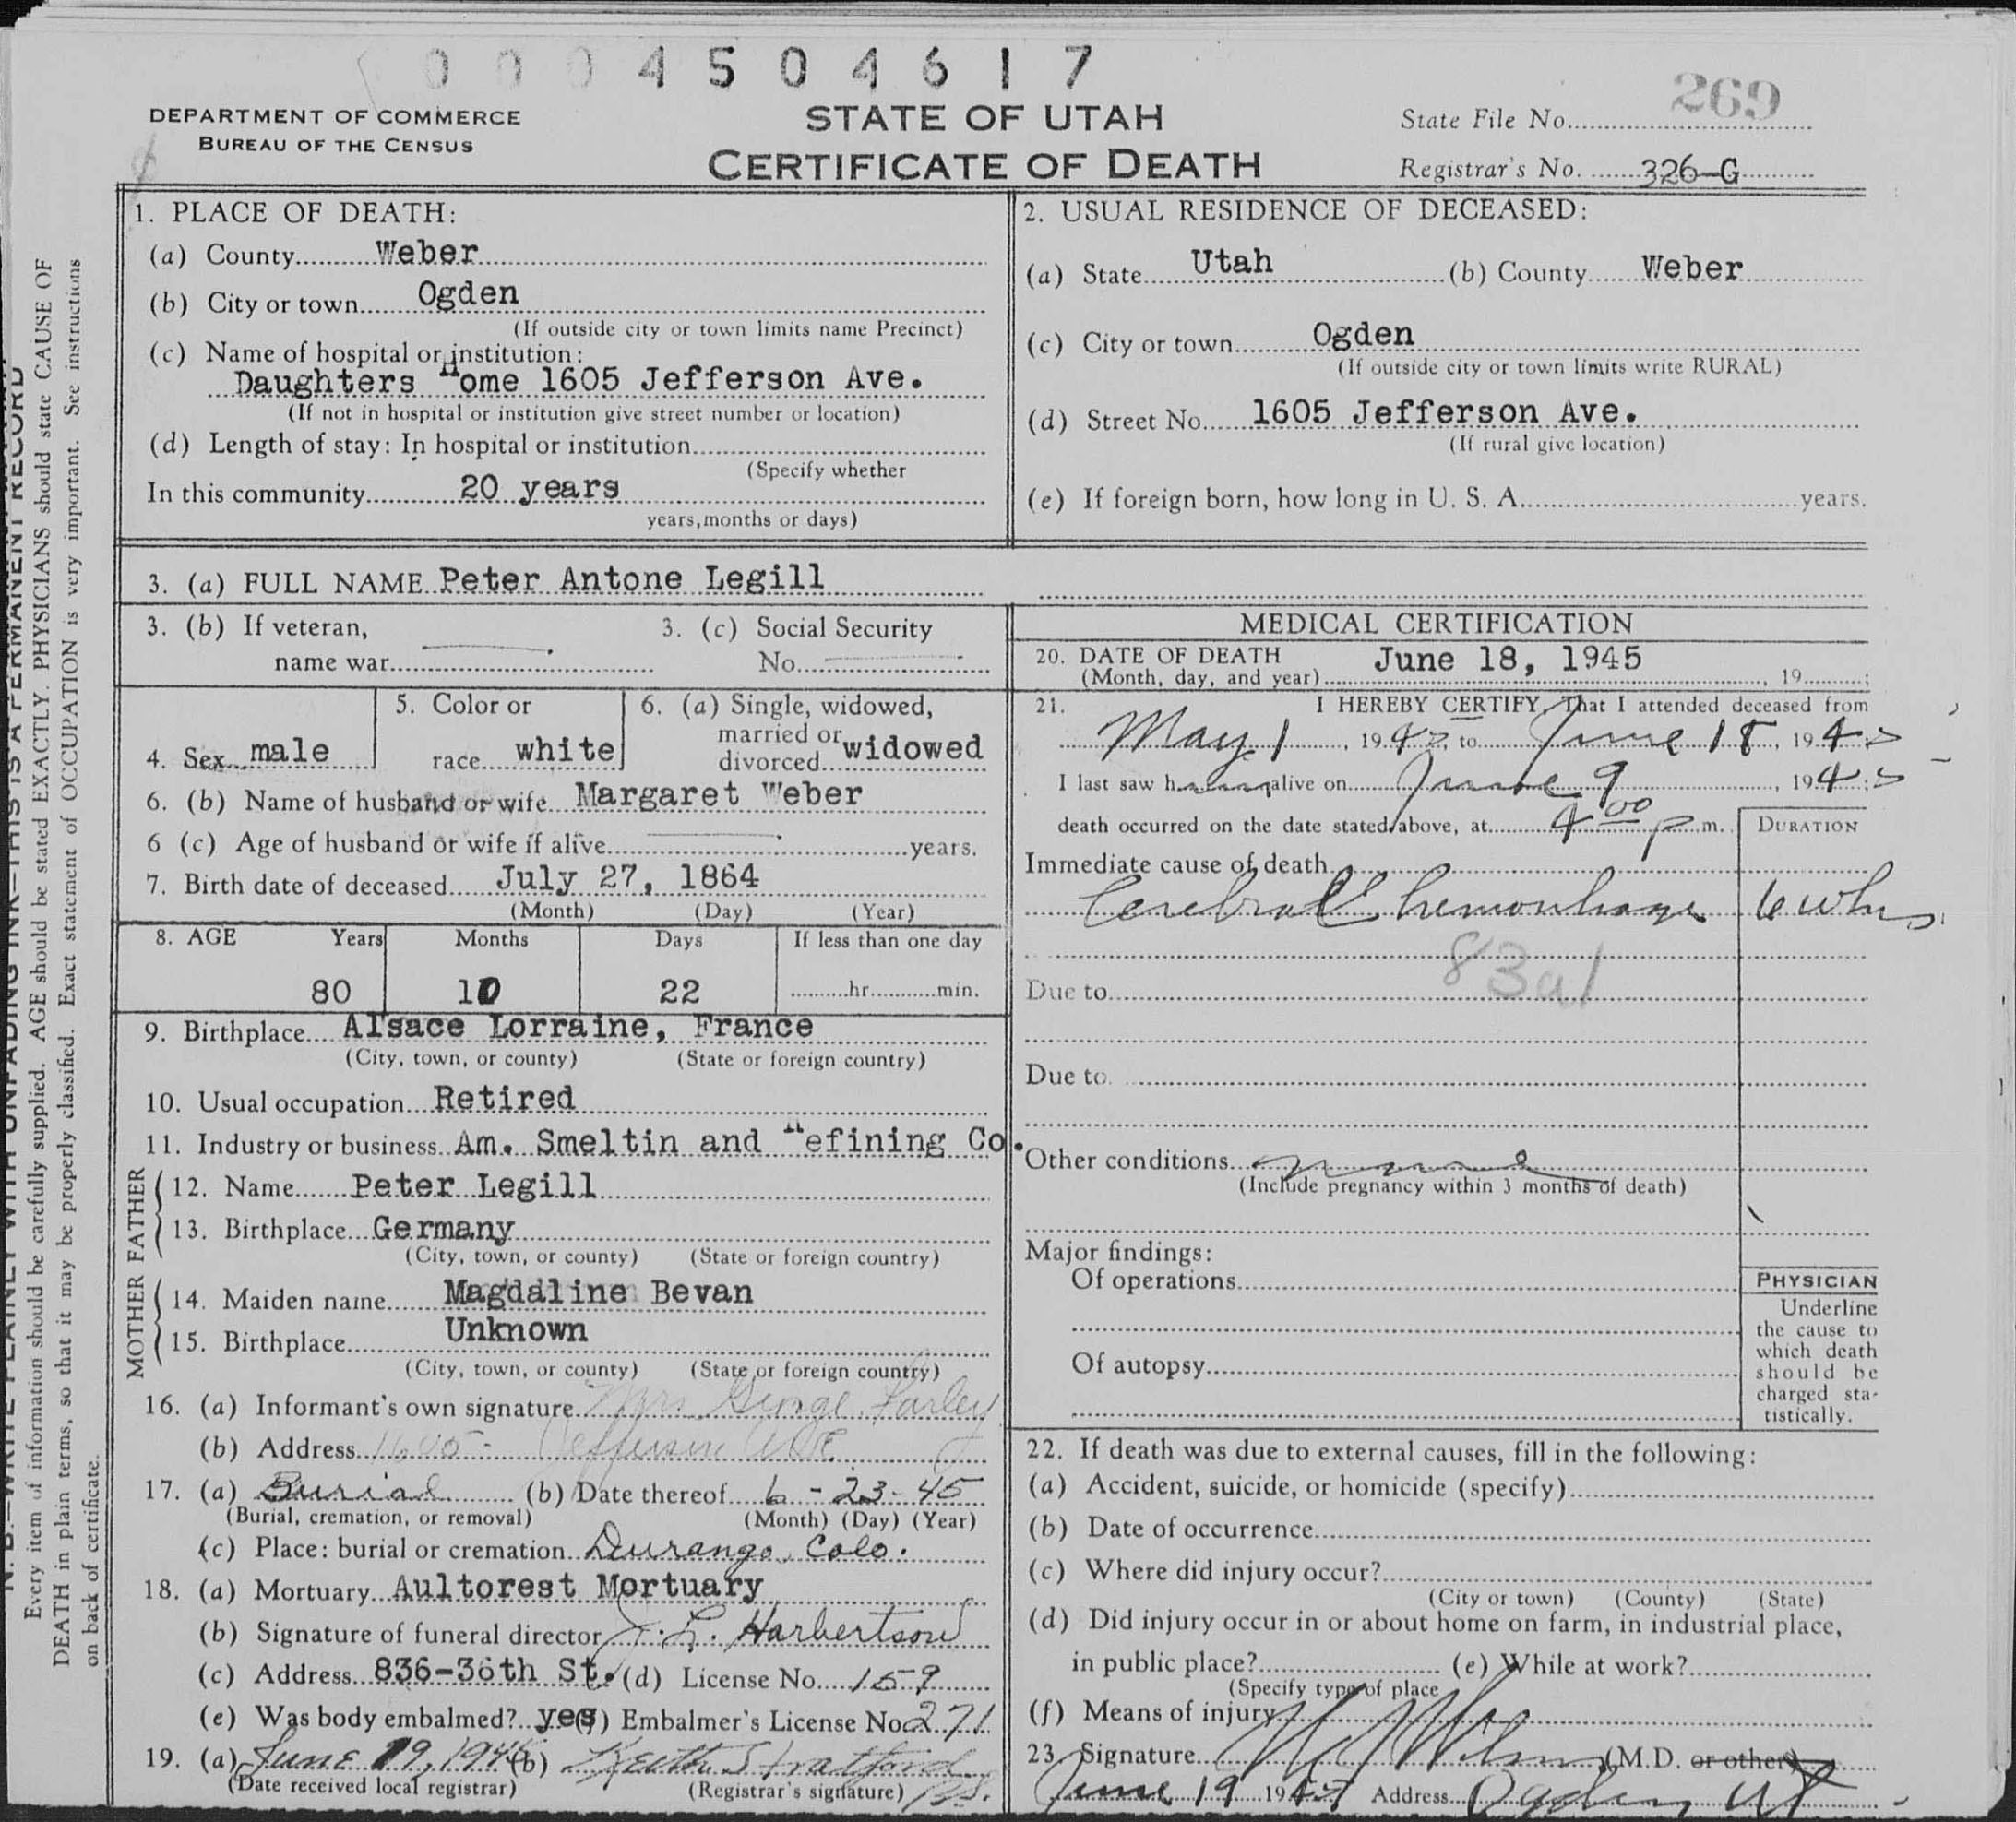 0004504617
269
DEPARTMENT OF COMMERCE
BUREAU OF THE CENSUS
STATE OF UTAH
CERTIFICATE OF DEATH
State File No.
Registrar's No. 326-G
N. B.—WRITE PLAINLY WITH UNFADING INK—THIS IS A PERMANENT RECORD
Every item of information should be carefully supplied. AGE should be stated EXACTLY. PHYSICIANS should state CAUSE OF
DEATH in plain terms, so that it may be properly classified. Exact statement of OCCUPATION is very important. See instructions
on back of certificate.
1. PLACE OF DEATH:
(a) County Weber
(b) City or town Ogden
(If outside city or town limits name Precinct)
(c) Name of hospital or institution:
Daughters Home 1605 Jefferson Ave.
(If not in hospital or institution give street number or location)
(d) Length of stay: In hospital or institution
(Specify whether
In this community 20 years
years, months or days)
2. USUAL RESIDENCE OF DECEASED:
(a) State Utah (b) County Weber
(c) City or town Ogden
(If outside city or town limits write RURAL)
(d) Street No. 1605 Jefferson Ave.
(If rural give location)
(e) If foreign born, how long in U. S. A. years.
3. (a) FULL NAME Peter Antone Legill
3. (b) If veteran,
name war
3. (c) Social Security
No.
4. Sex male
5. Color or
race white
6. (a) Single, widowed,
married or
divorced widowed
6. (b) Name of husband or wife Margaret Weber
6 (c) Age of husband or wife if alive years.
7. Birth date of deceased July 27, 1864
(Month) (Day) (Year)
8. AGE Years Months Days If less than one day
80 10 22 hr. min.
9. Birthplace Alsace Lorraine, France
(City, town, or county) (State or foreign country)
10. Usual occupation Retired
11. Industry or business Am. Smeltin and Refining Co.
FATHER
12. Name Peter Legill
13. Birthplace Germany
(City, town, or county) (State or foreign country)
MOTHER
14. Maiden name Magdaline Bevan
15. Birthplace Unknown
(City, town, or county) (State or foreign country)
16. (a) Informant's own signature Mrs George Farley
(b) Address 1605 - Jefferson Ave.
17. (a) Burial (b) Date thereof 6 - 23 - 45
(Burial, cremation, or removal) (Month) (Day) (Year)
(c) Place: burial or cremation Durango, Colo.
18. (a) Mortuary Aultorest Mortuary
(b) Signature of funeral director J. L. Harbertson
(c) Address 836-36th St. (d) License No. 159
(e) Was body embalmed? yes (f) Embalmer's License No. 271
19. (a) June 19, 1945 (b) Keith Stratford
(Date received local registrar) (Registrar's signature)
MEDICAL CERTIFICATION
20. DATE OF DEATH June 18, 1945
(Month, day, and year) , 19 ;
21. I HEREBY CERTIFY, That I attended deceased from
May 1, 1945, to June 18, 1945
I last saw him alive on June 9, 1945;
death occurred on the date stated above, at 4 00 p m.
DURATION
Immediate cause of death
Cerebral hemorrhage 6 wks.
83a1
Due to
Due to
Other conditions none
(Include pregnancy within 3 months of death)
Major findings:
Of operations
Of autopsy
PHYSICIAN
Underline
the cause to
which death
should be
charged sta-
tistically.
22. If death was due to external causes, fill in the following:
(a) Accident, suicide, or homicide (specify)
(b) Date of occurrence
(c) Where did injury occur?
(City or town) (County) (State)
(d) Did injury occur in or about home on farm, in industrial place,
in public place? (e) While at work?
(Specify type of place
(f) Means of injury
23. Signature (M.D. or other)
June 19 1945 Address Ogden, Ut